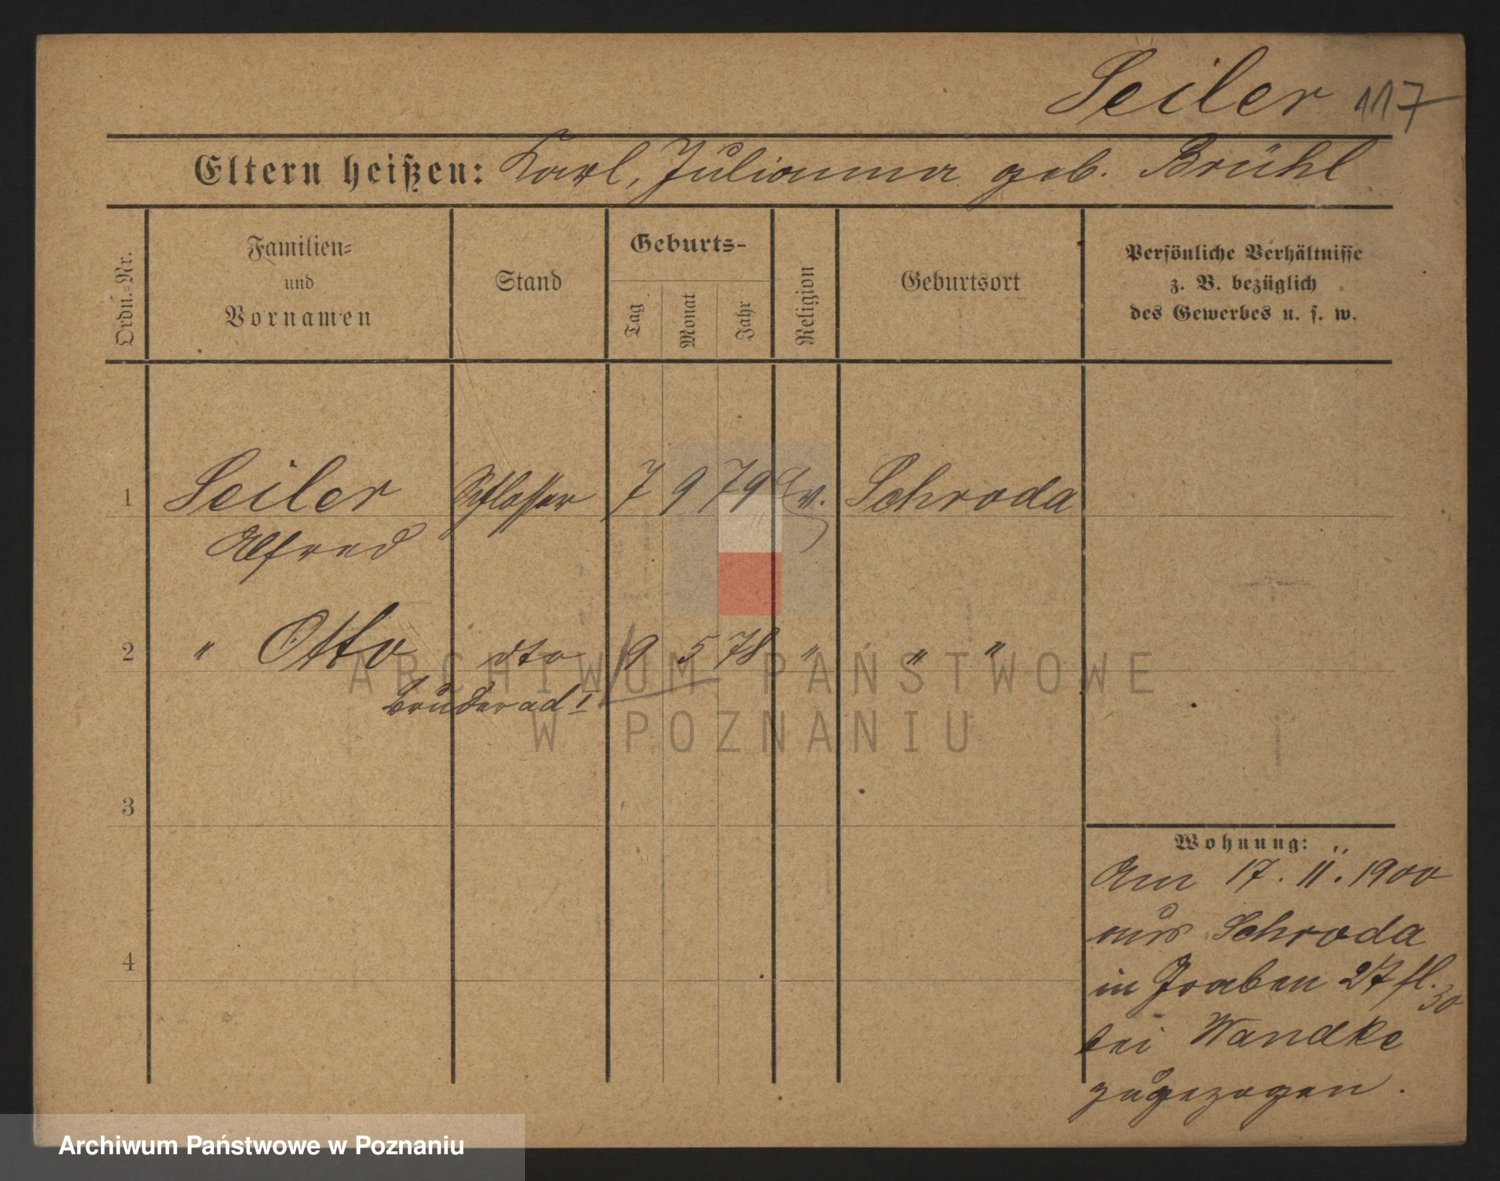 Seiler 117
Eltern heißen: Karl, Julianna geb. Brühl
Ordn.-Nr.
Familien-
und
Vornamen
Stand
Geburts-
Tag
Monat
Jahr
Religion
Geburtsort
Persönliche Verhältnisse
z. B. bezüglich
des Gewerbes u. s. w.
1 Seiler Schlosser 7 9 79 Ev. Schroda
Alfred
2 " Otto dto 9 5 78 " " "
Bruder ad 1
3
4
Wohnung:
Am 17. 11. 1900
aus Schroda
in Graben 27 fl. 30
bei Wandke
zugezogen.
ARCHIWUM PAŃSTWOWE
W POZNANIU
Archiwum Państwowe w Poznaniu